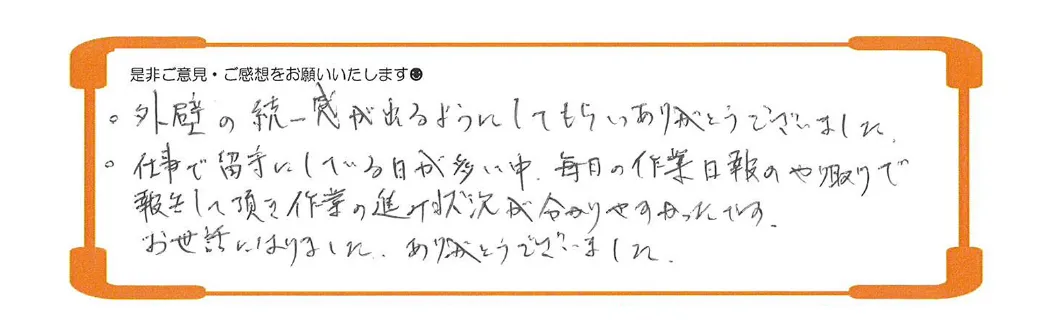 是非ご意見・ご感想をお願いいたします☻
。外壁の統一感が出るようにしてもらいありがとうございました。
。仕事で留守にしている日が多い中、毎日の作業日報のやり取りで
報告して頂き作業の進み状況が分かりやすかったです。
お世話になりました。ありがとうございました。